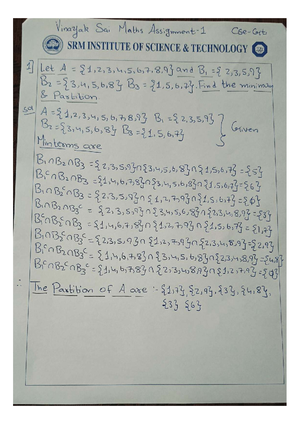 Vinayak Sai Maths Assignment-1 CSE-G1
SRM INSTITUTE OF SCIENCE & TECHNOLOGY
1] Let A = {1,2,3,4,5,6,7,8,9} and B₁ = {2,3,5,9}
B₂ = {3,4,5,6,8} B₃ = {1,5,6,7}. Find the
& Partition
sol A = {1,2,3,4,5,6,7,8,9} B₁ = {2,3,5,9}
B₂ = {3,4,5,6,8} B₃ = {1,5,6,7} } Given
Minterms are
B₁∩B₂∩B₃ = {2,3,5,9}∩{3,4,5,6,8}∩{1,5,6,7} = {5}
B₁ᶜ∩B₂∩B₃ = {1,4,6,7,8}∩{3,4,5,6,8}∩{1,5,6,7} = {6}
B₁∩B₂ᶜ∩B₃ = {2,3,5,9}∩{1,2,7,9}∩{1,5,6,7} =
B₁∩B₂∩B₃ᶜ = {2,3,5,9}∩{3,4,5,6,8}∩{2,3,4,8,9} = {3}
B₁ᶜ∩B₂ᶜ∩B₃ = {1,4,6,7,8}∩{1,2,7,9}∩{1,5,6,7} = {1,7}
B₁∩B₂ᶜ∩B₃ᶜ = {2,3,5,9}∩{1,2,7,9}∩{2,3,4,8,9} = {2,9}
B₁ᶜ∩B₂∩B₃ᶜ = {1,4,6,7,8}∩{3,4,5,6,8}∩{2,3,4,8,9} = {4,8}
B₁ᶜ∩B₂ᶜ∩B₃ᶜ = {1,4,6,7,8}∩{2,3,4,8,9}∩{1,2,7,9} =
The Partition of A are :- {1,7}, {2,9}, {3}, {4,8},
{3} {6}